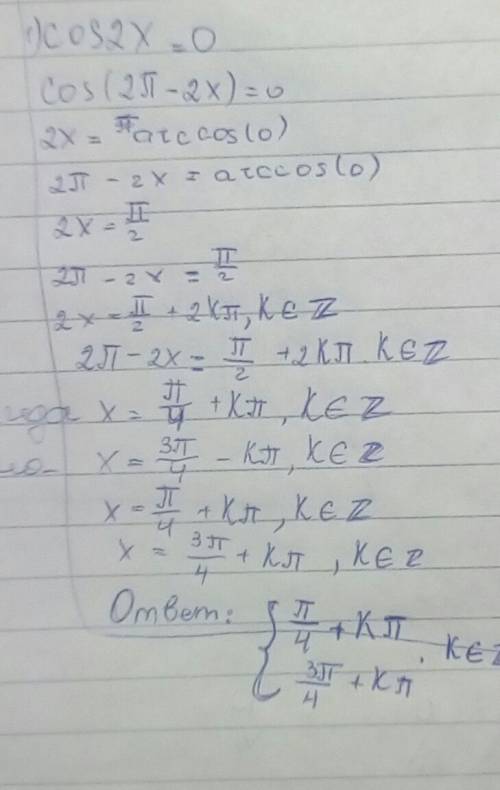 1) cos2x = 0
cos(2π - 2x) = 0
2x = arccos(0)
2π - 2x = arccos(0)
2x = π/2
2π - 2x = π/2
2x = π/2 + 2Kπ, K ∈ Z
2π - 2x = π/2 + 2Kπ K ∈ Z
x = π/4 + Kπ, K ∈ Z
x = 3π/4 - Kπ, K ∈ Z
x = π/4 + Kπ, K ∈ Z
x = 3π/4 + Kπ, K ∈ Z
Ответ: { π/4 + Kπ
3π/4 + Kπ . K ∈ Z